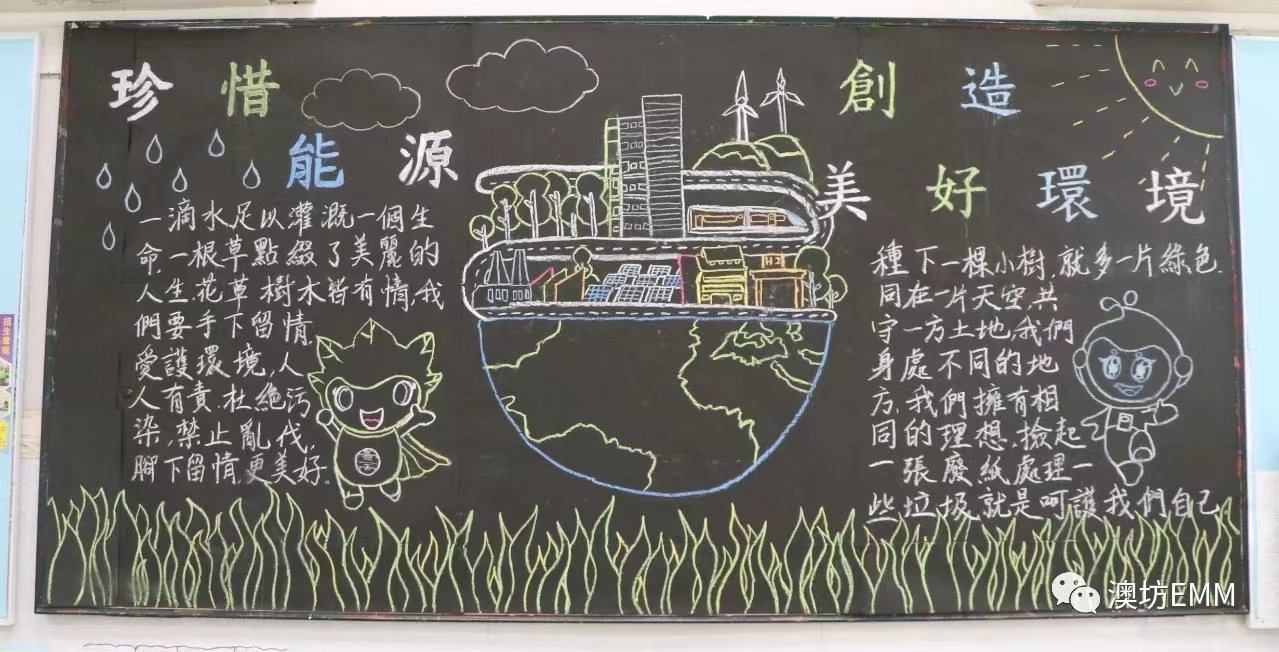 珍惜
能源
一滴水足以灌溉一個生
命,一根草點綴了美麗的
人生.花草樹木皆有情,我
們要手下留情.
愛護環境,人
人有責.杜絶污
染,禁止亂伐,
腳下留情更美好.
創造
美好環境
種下一棵小樹,就多一片綠色.
同在一片天空,共
守一方土地,我們
身處不同的地
方,我們擁有相
同的理想,撿起
一張廢紙,處理一
些垃圾,就是呵護我們自己.
招生章程
澳坊EMM